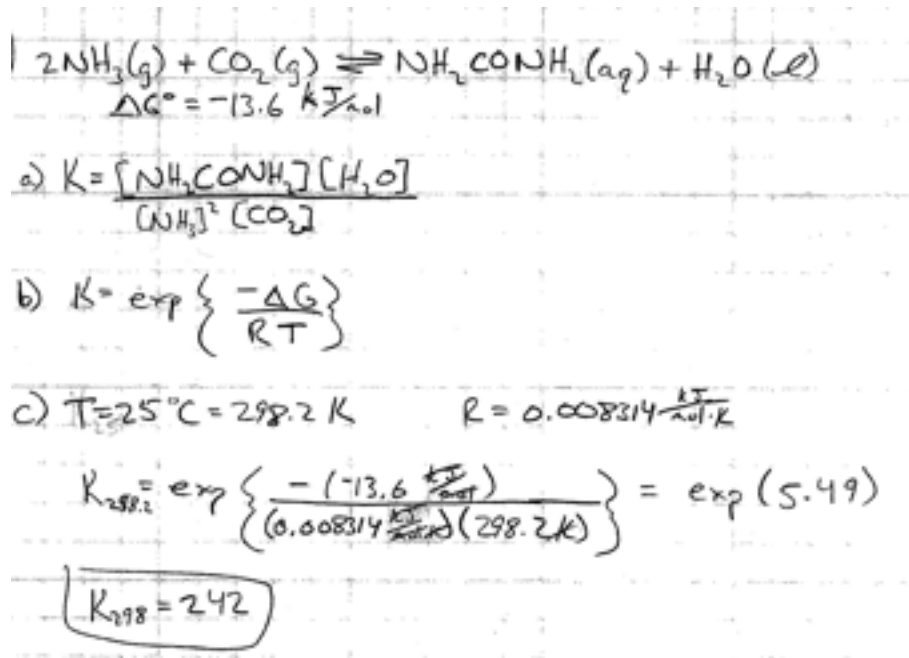 2NH₃(g) + CO₂(g) ⇌ NH₂CONH₂(aq) + H₂O(l)
ΔG° = -13.6 kJ/mol
a) K = [NH₂CONH₂][H₂O] / [NH₃]² [CO₂]
b) K = exp { -ΔG / RT }
c) T = 25°C = 298.2 K R = 0.008314 kJ/mol·K
K₂₉₈.₂ = exp { -(-13.6 kJ/mol) / (0.008314 kJ/mol·K)(298.2K) } = exp(5.49)
K₂₉₈ = 242